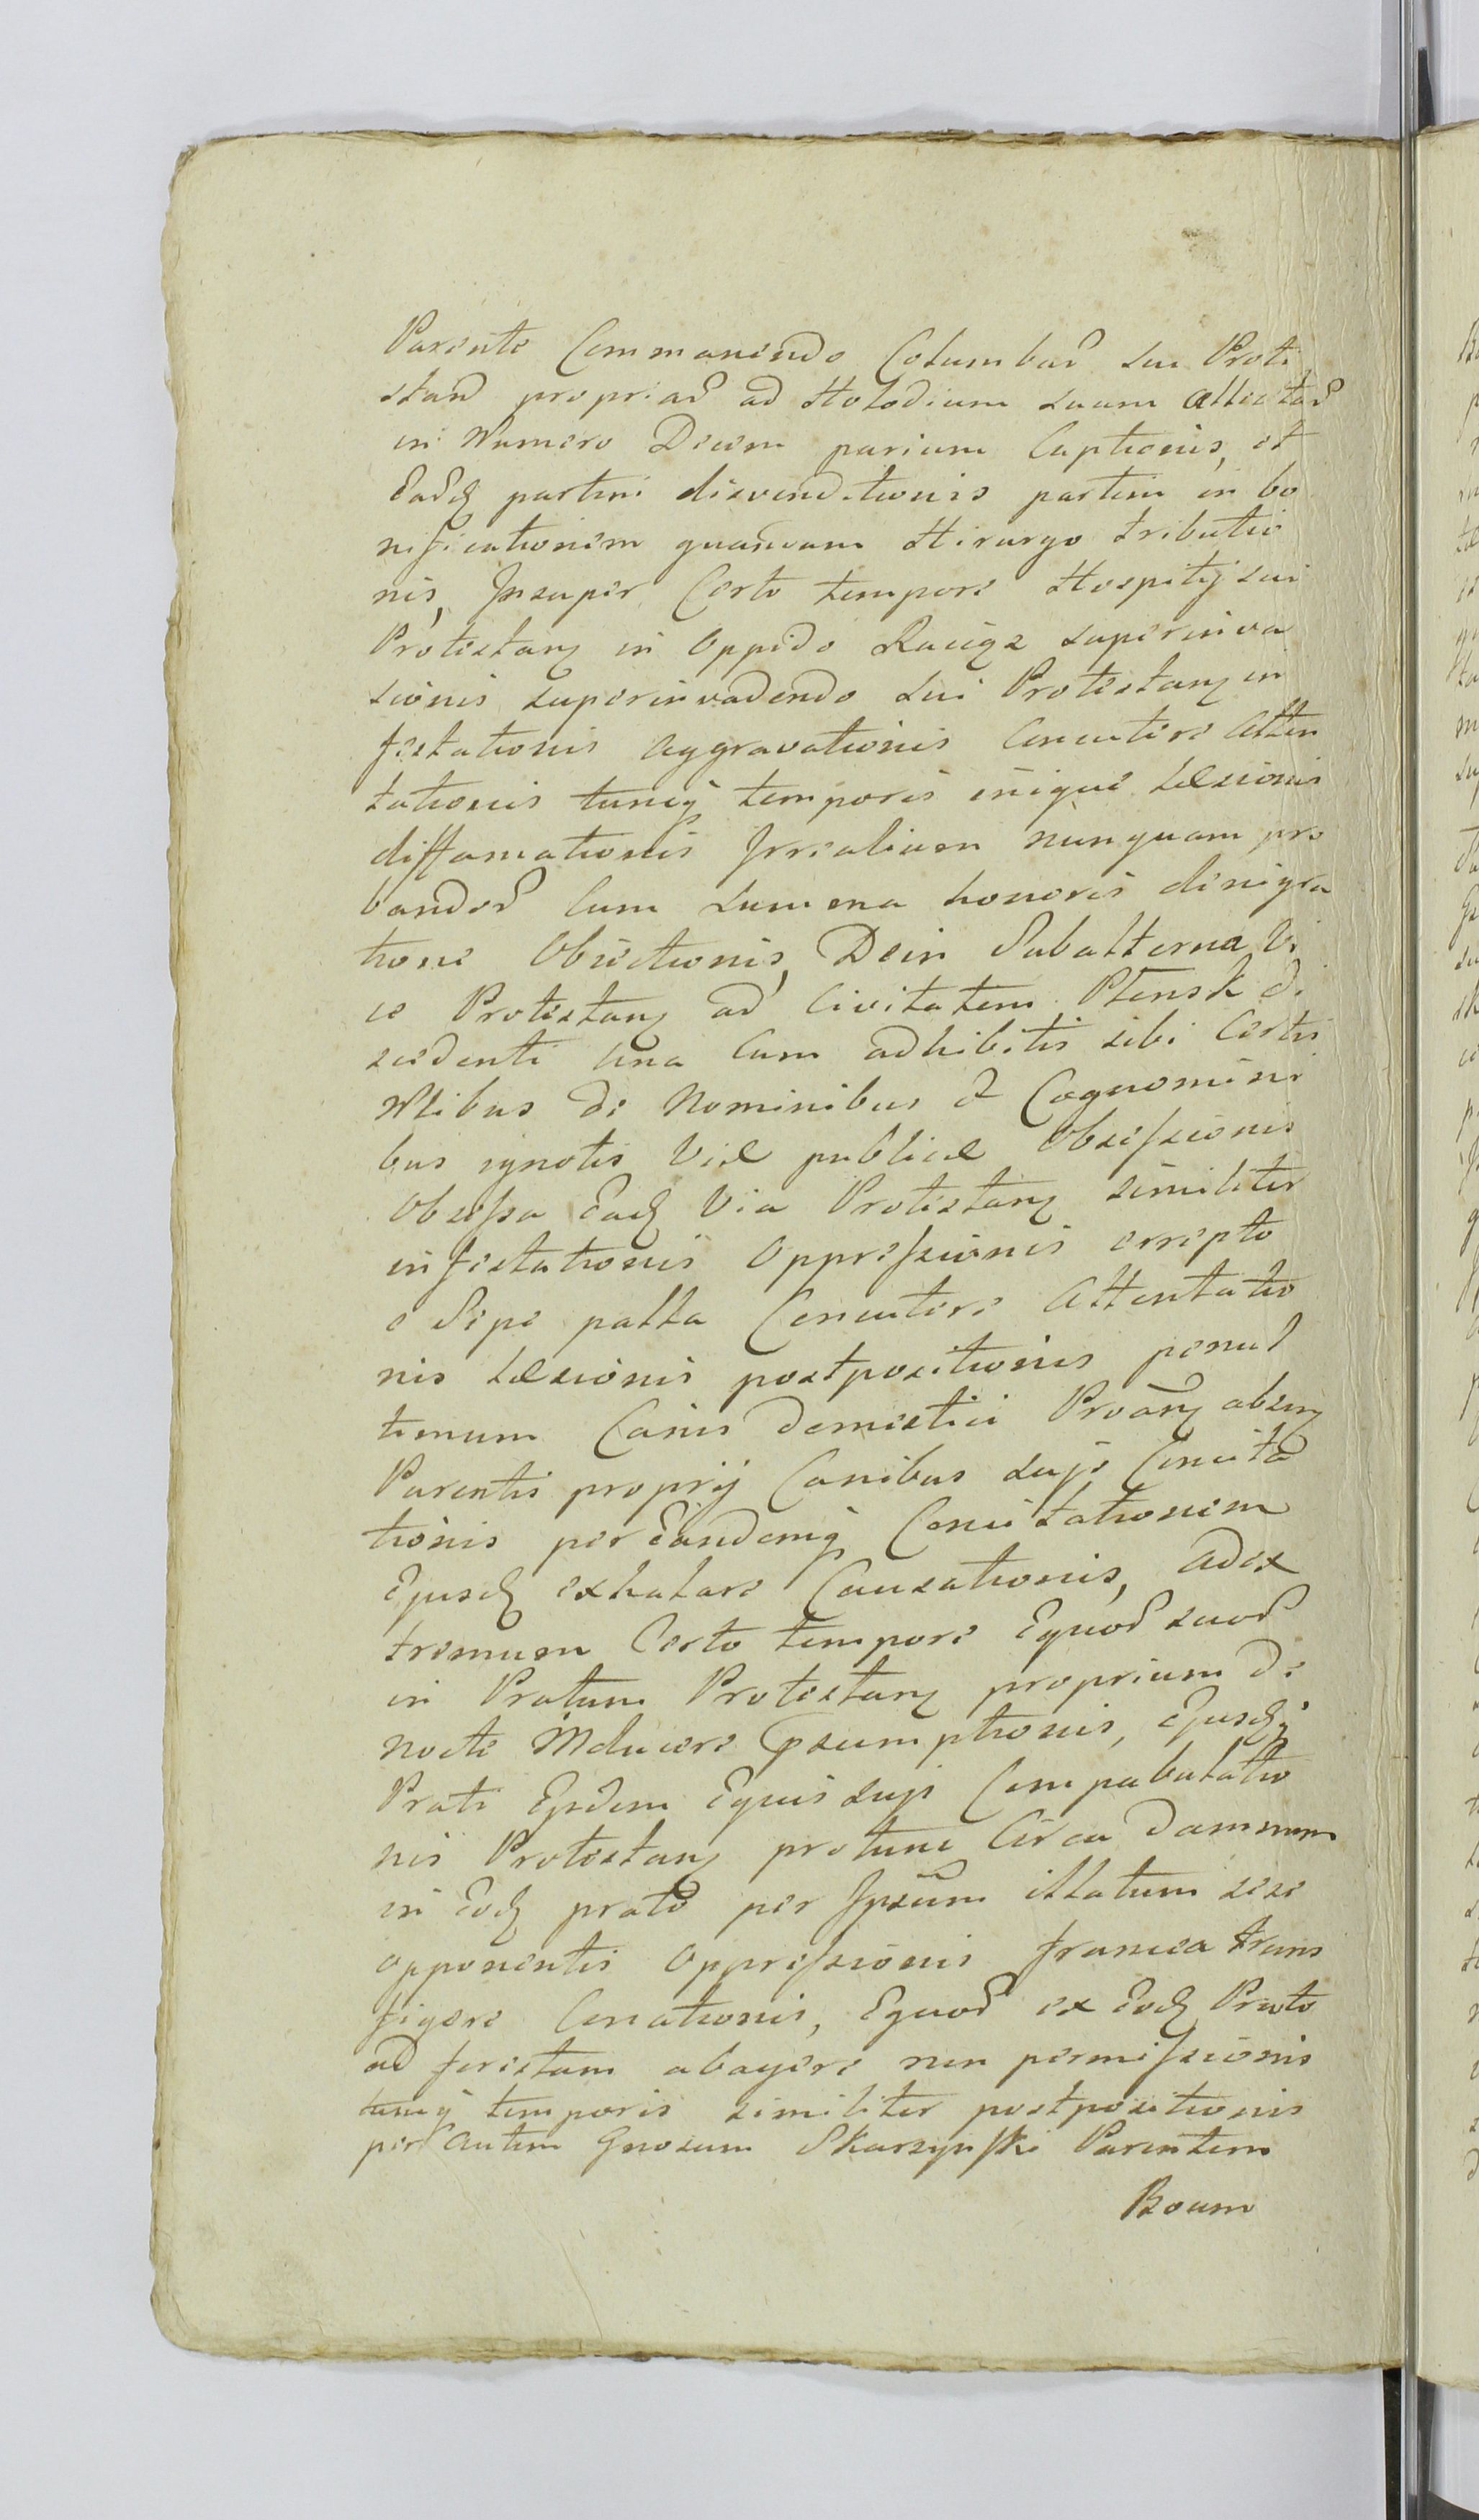 Parente Commanendo Columbas sui Prote
stan propriad ad Holodium suum allectas
in Numero Decem parium Captionis, et
Easdq partim disvenditionis partim in bo
nificationem quamvam Hirurgo tributio
nis, Insuper Certo tempore Hospitij sui
Protestanz in Oppido Raciąz superinva
sionis superinvadendo sui Protestanz in
festationis Aggravationis Concutere atten
tationis tuncq temporis inique Læsionis
diffamationis Irrealium nunquam pro
bandod Cum summa honoris denigra
tione Obiectionis, Dein Subalterna Vi
ce Protestanz ad Civitatem Płensk di
scedenti una Cum adhibitis sibi Certis
Nlibus de Nominibus et Cognomini
bus ignotis Viæ publicæ Obsessionis
Obsessa Eadq Via Protestanz similiter
infestationis Oppressionis errepto
e Sepe palla Concutere Attentatio
nis Læsionis postpositionis penul
timum Canis domestici Proanz absenz
Parentis proprij Canibus suji Concita
tionis per Eandemq Concitationem
Ejusdq exhalare Causationis, adex
tremum Certo tempore Equod suod
in Pratum Protestanz proprium de
nocte Inducere Psumptionis, Ejusdq
Prati Eisdem Equis suji Compabulatio
nis Protestanz protunc Circa damnum
in Eodq prato per Ipsum illatum sese
opponentis Oppressionis framea trans
figere Conationis, Equod ex Eodq Prato
ad forestam abagere non permissionis
tuncq temporis similiter postpositionis
per autem Gnosum Skarzynski Parentem
Boum